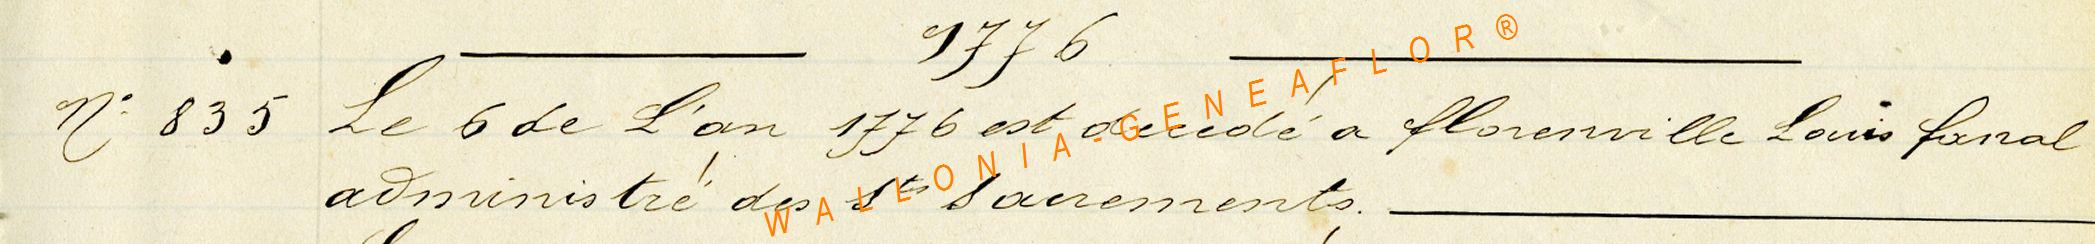 1776
N° 835 Le 6 de L'an 1776 est decedé a florenville Louis fanal
administré des Sts Sacrements.
WALLONIA-GENEAFLOR®